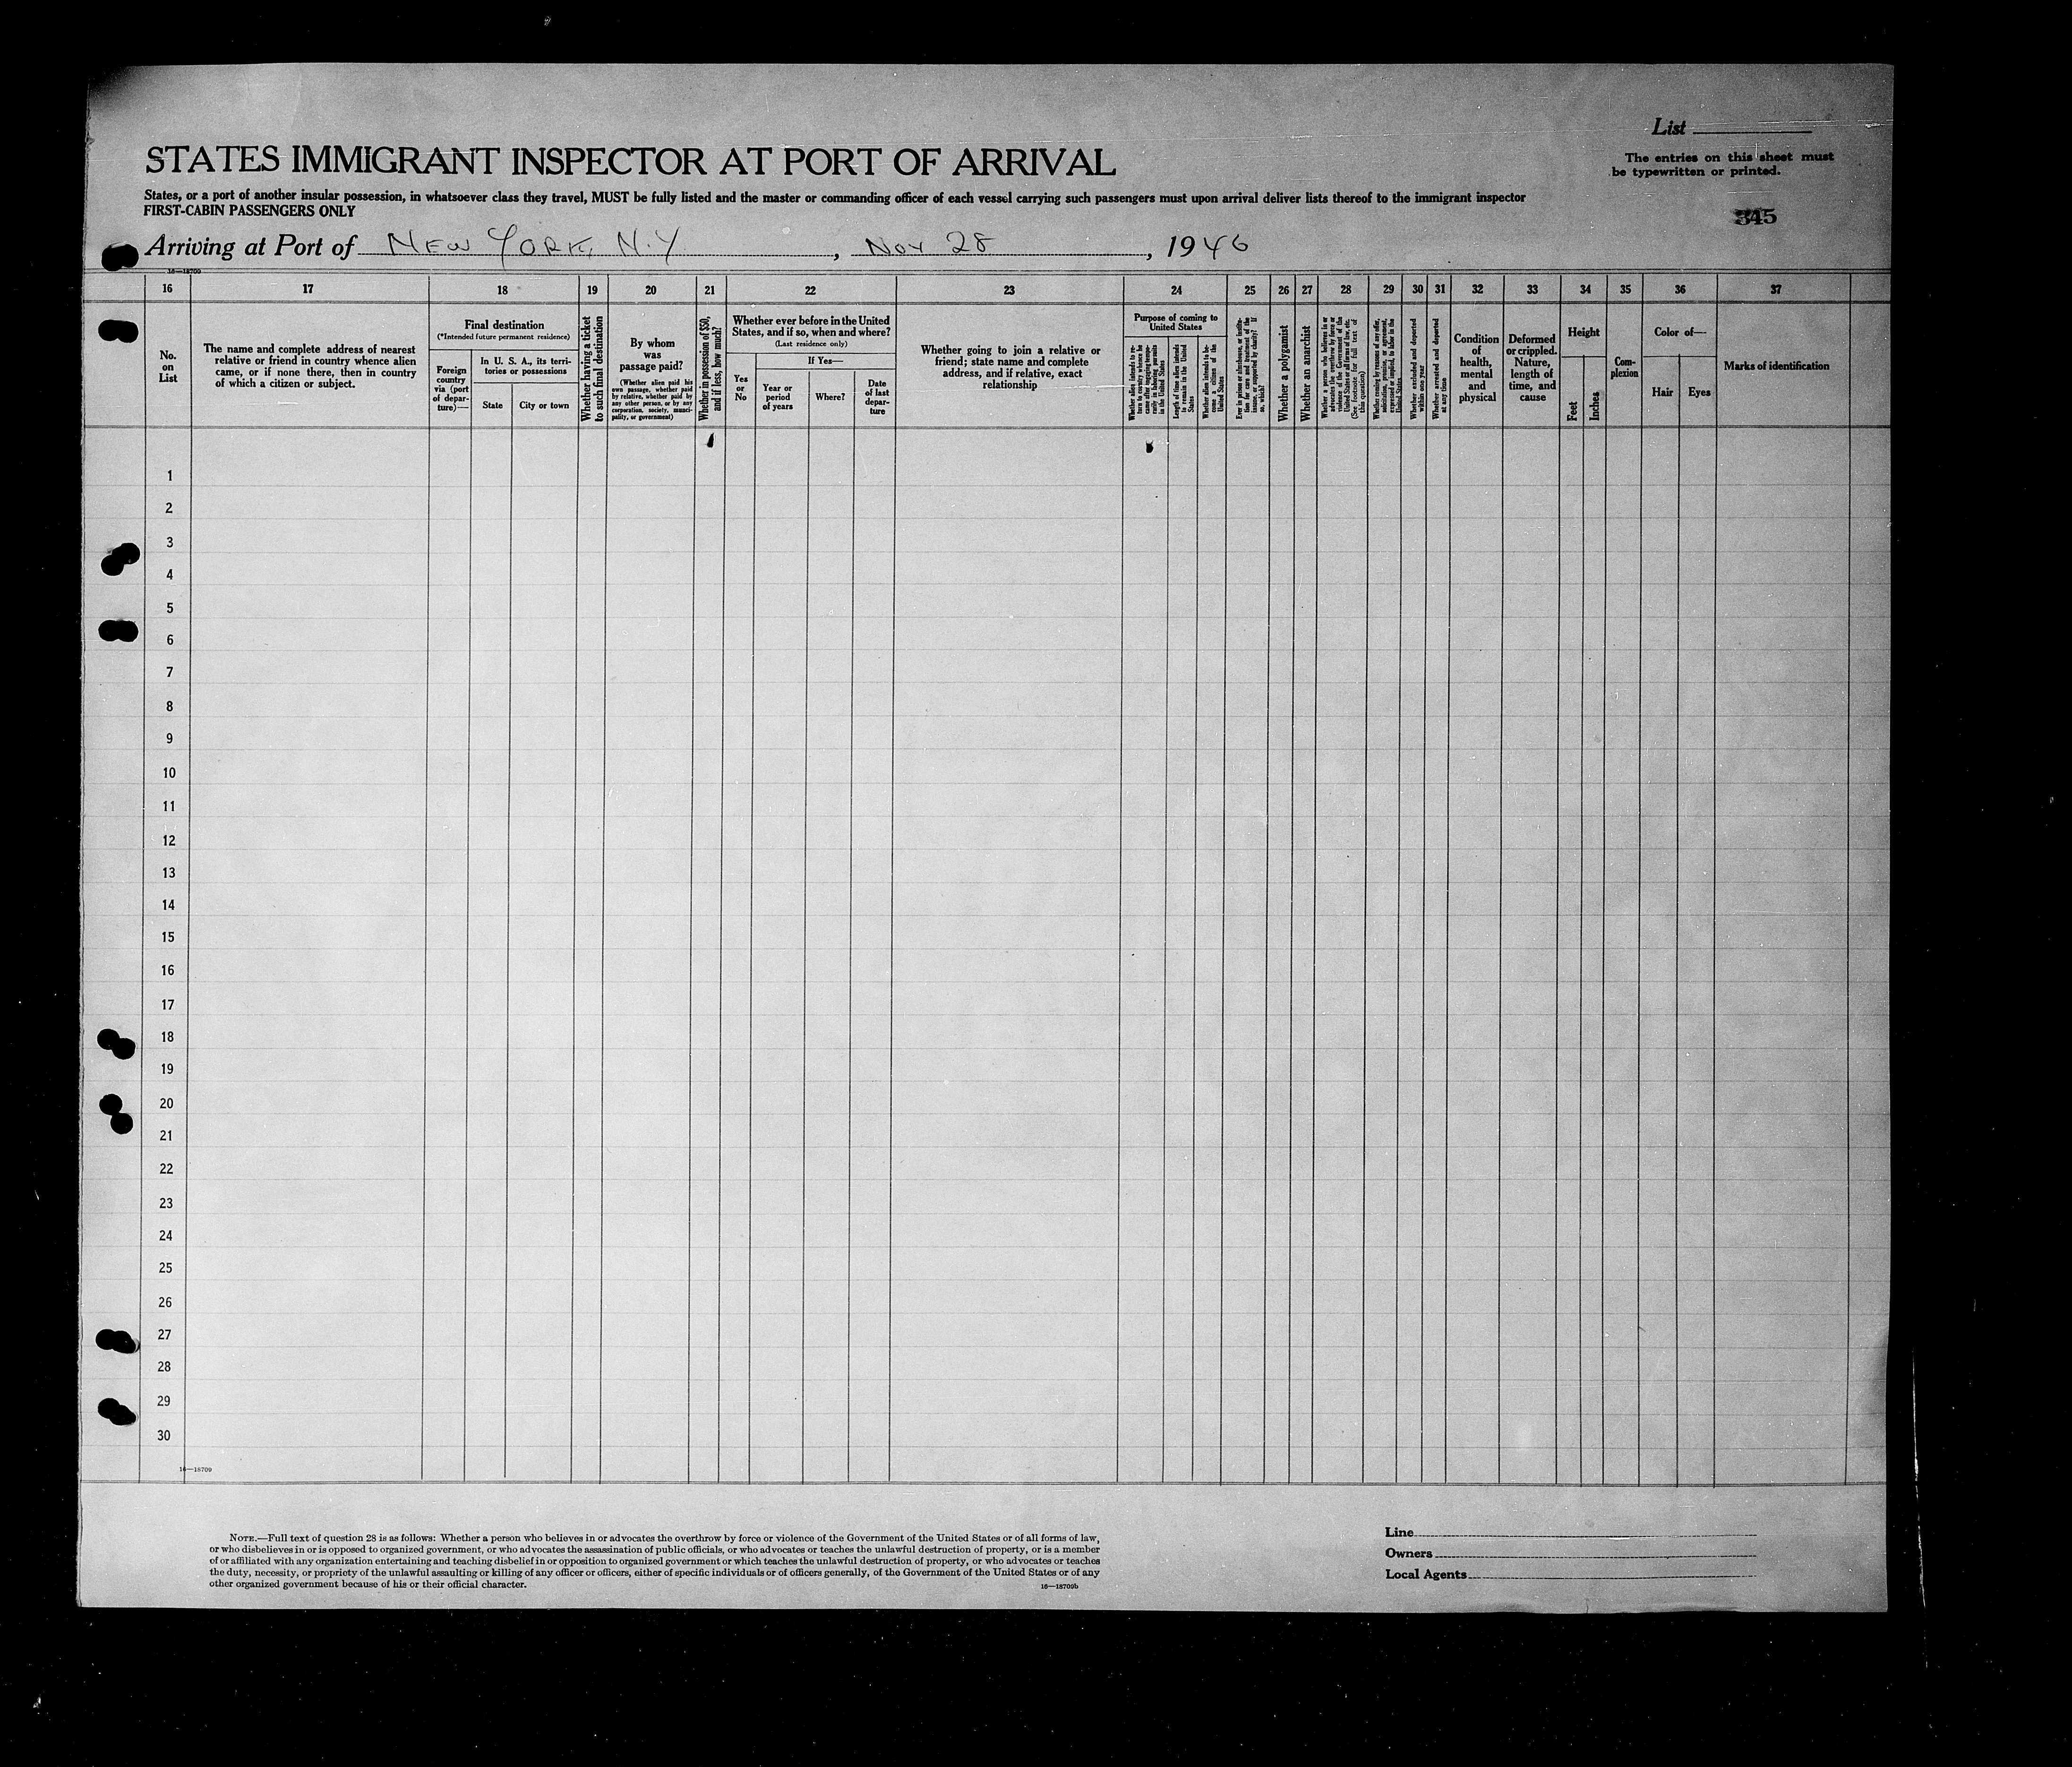 List
STATES IMMIGRANT INSPECTOR AT PORT OF ARRIVAL
The entries on this sheet must
be typewritten or printed.
States, or a port of another insular possession, in whatsoever class they travel, MUST be fully listed and the master or commanding officer of each vessel carrying such passengers must upon arrival deliver lists thereof to the immigrant inspector
FIRST-CABIN PASSENGERS ONLY
345
Arriving at Port of NEW YORK, N.Y, Nov 28, 1946
16—18709
16 17 18 19 20 21 22 23 24 25 26 27 28 29 30 31 32 33 34 35 36 37
No.
on
List
The name and complete address of nearest
relative or friend in country whence alien
came, or if none there, then in country
of which a citizen or subject.
Final destination
(*Intended future permanent residence)
Foreign
country
via (port
of depar-
ture)—
In U. S. A., its terri-
tories or possessions
State
City or town
Whether having a ticket
to such final destination
By whom
was
passage paid?
(Whether alien paid his
own passage, whether paid
by relative, whether paid by
any other person, or by any
corporation, society, munici-
pality, or government)
Whether in possession of $50,
and if less, how much?
Whether ever before in the United
States, and if so, when and where?
(Last residence only)
Yes
or
No
If Yes—
Year or
period
of years
Where?
Date
of last
depar-
ture
Whether going to join a relative or
friend; state name and complete
address, and if relative, exact
relationship
Purpose of coming to
United States
Length of time alien intends
to remain in the United
States
Whether alien intends to be-
come a citizen of the
United States
Ever in prison or almshouse, or institu-
tion for care and treatment of the
insane, or supported by charity? If
so, which?
Whether a polygamist
Whether an anarchist
Whether a person who believes in or
advocates the overthrow by force or
violence of the Government of the
United States or all forms of law, etc.
(See footnote for full text of
this question)
Whether coming by reason of any offer,
solicitation, promise, or agreement,
expressed or implied, to labor in the
United States
Whether excluded and deported
within one year
Whether arrested and deported
at any time
Condition
of
health,
mental
and
physical
Deformed
or crippled.
Nature,
length of
time, and
cause
Height
Feet
Inches
Com-
plexion
Color of—
Hair
Eyes
Marks of identification
1
2
3
4
5
6
7
8
9
10
11
12
13
14
15
16
17
18
19
20
21
22
23
24
25
26
27
28
29
30
16—18709
NOTE.—Full text of question 28 is as follows: Whether a person who believes in or advocates the overthrow by force or violence of the Government of the United States or of all forms of law,
or who disbelieves in or is opposed to organized government, or who advocates the assassination of public officials, or who advocates or teaches the unlawful destruction of property, or is a member
of or affiliated with any organization entertaining and teaching disbelief in or opposition to organized government or which teaches the unlawful destruction of property, or who advocates or teaches
the duty, necessity, or propriety of the unlawful assaulting or killing of any officer or officers, either of specific individuals or of officers generally, of the Government of the United States or of any
other organized government because of his or their official character.
16—18709b
Line
Owners
Local Agents